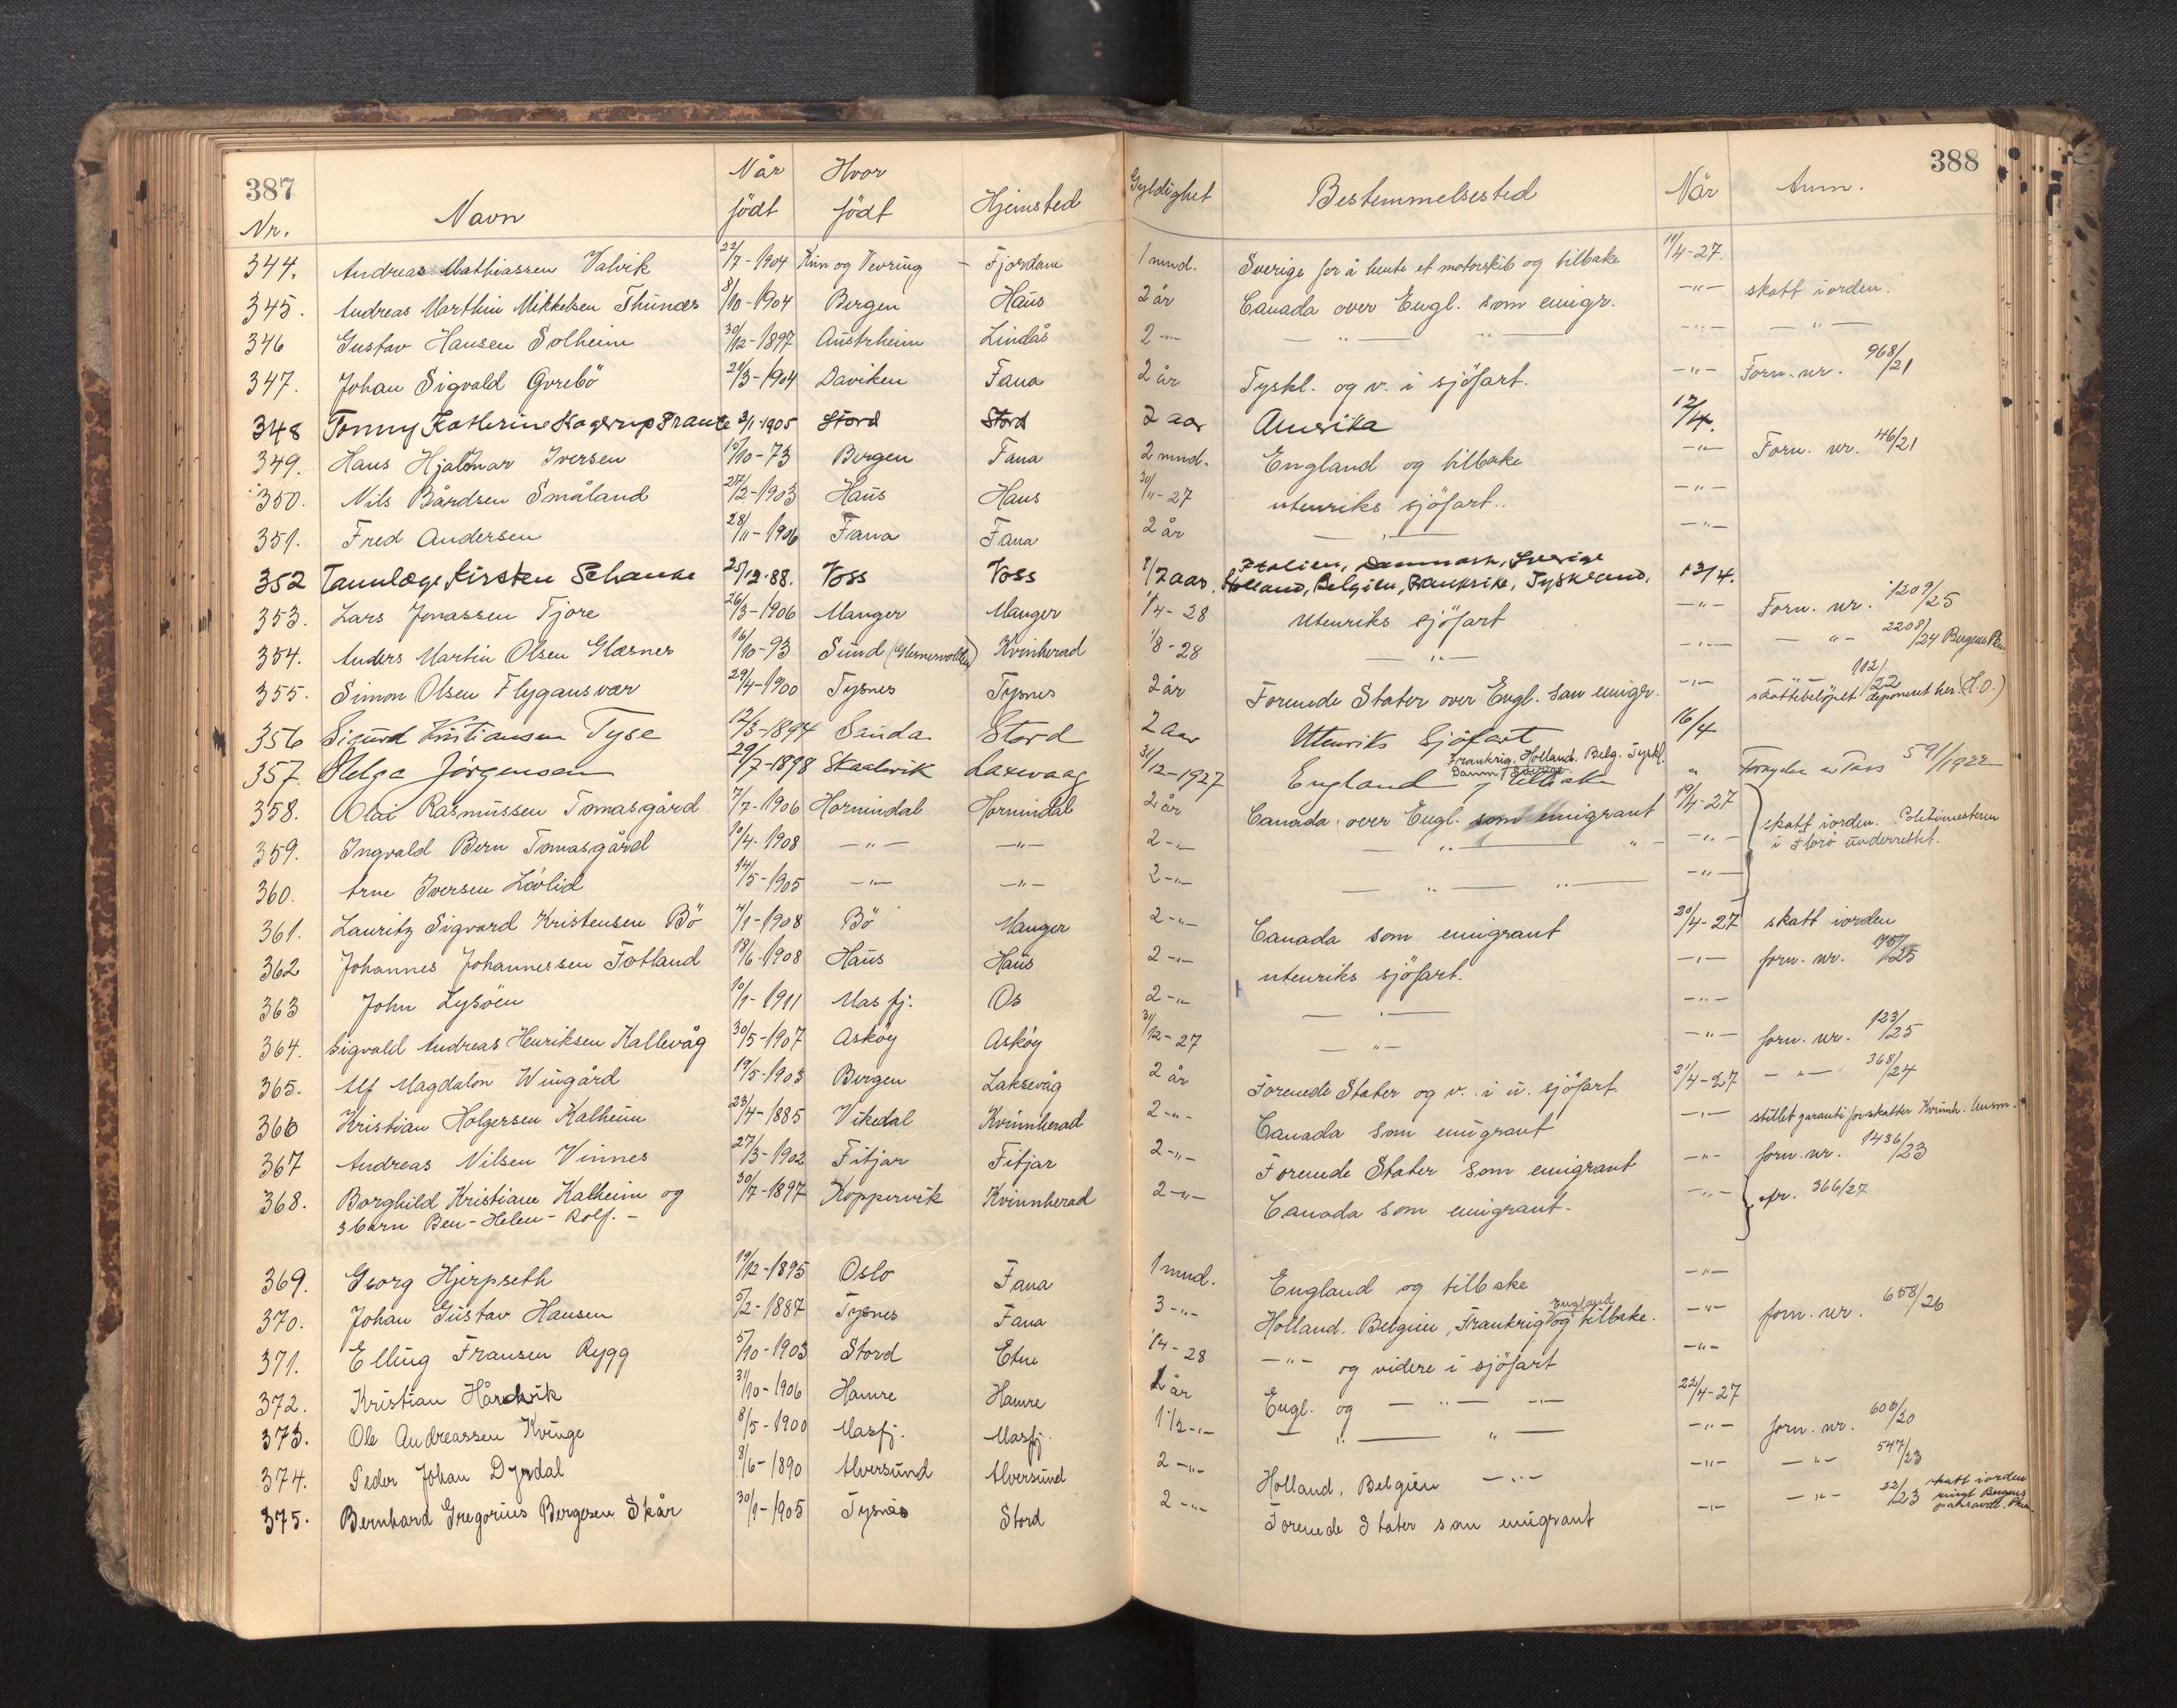 387
388
Nr. Navn Når født Hvor født Hjemsted Gyldighet Bestemmelsested Når Anm.
344. Andreas Mathiassen Valvik 22/7-1904 Kinn og Vevring - Fjordane 1 mnd. Sverige for å hente et motorskib og tilbake 19/4-27.
345. Andreas Marthin Mikkelsen Thunes 8/10-1904 Bergen Haus 2 år Canada over Engl. som emigr. -"- skatt iorden.
346 Gustav Hansen Solheim 30/12-1897 Austrheim Lindås 2 -"- — " — " — -"- — " —
347. Johan Sigvald Gvrebö 29/3-1904 Daviken Fana 2 år Tyskl. og v. i sjöfart. -"- Forn. nr. 968/21
348 Tonny Katherine Kagerup Frantz 3/1-1905 Stord Stord 2 aar Amerika 12/4.
349. Hans Hjalmar Iversen 15/10-73 Bergen Fana 2 mnd. England og tilbake -"- Forn. nr. 46/21
350. Nils Bårdsen Småland 27/2-1903 Haus Haus 30/11-27 utenriks sjöfart.. -"-
351. Fred Andersen 28/11-1906 Fana Fana 2 år — " — -"-
352 Tannlæge Kirsten Schanke 25/12-88. Voss Voss 1/2 aar. Italien, Danmark, Sverige
Holland, Belgien, Frankrike, Tyskland. 13/4.
353. Lars Jonassen Tjore 26/3-1906 Manger Manger 1/4-28 Utenriks sjöfart -"- Forn. nr. 1209/25
354. Anders Martin Olsen Glesnes 16/10-93 Sund Kvinherad 1/8-28 — " — -"- — " - 2208/24 Bergens Pk.
355. Simon Olsen Flygansvær 29/4-1900 Tysnes Tysnes 2 år Forenede Stater over Engl. som emigr. -"- 112/22
skattebelöpet deponert her. (H.O.)
356 Sigurd Kristiansen Tyse 12/3-1894 Sauda Stord 2 aar Utenriks Sjöfart 16/4
357. Helga Jörgensen 29/7-1898 Skaalevik Laxevaag 31/12-1927 England Frankrig, Holland. Belg. Tyskl.
Danm. Sverige og tilbake " Fornyelse av Pass 591/1922
358. Olai Rasmussen Tomasgård 7/7-1906 Hornindal Hornindal 2 år Canada over Engl. som emigrant 19/4-27 skatt iorden. Politimesteren
i Florö underrettet.
359. Ingvald Bern Tomasgård 10/4-1908 — " — -"- 2 -"- — " — " - -"-
360. Arne Iversen Lövlid 14/5-1905 — " — -"- 2 -"- — " — " — -"-
361. Lauritz Sigvard Kristensen Bö 4/1-1908 Bö Manger 2 -"- Canada som emigrant 20/4-27 skatt iorden
362 Johannes Johannessen Fotland 18/6-1908 Haus Haus 2 -"- utenriks sjöfart. -"- forn. nr. 757/25
363 John Lysöen 10/1-1911 Masfj. Os 2 -"- — " — -"-
364. Sigvald Andreas Henriksen Kallevåg 30/5-1907 Asköy Asköy 31/12-27 — " — -"- forn. nr. 123/25
365. Alf Magdalon Wingård 19/5-1903 Bergen Laksevåg 2 år Forenede Stater og v. i u. sjöfart. 21/4-27 — " — 368/24
366 Kristian Holgersen Kalheim 23/4-1885 Vikedal Kvinnherad 2 -"- Canada som emigrant -"- stillet garanti for skatter Kvinnh.
367 Andreas Nilsen Vinnes 27/3-1902 Fitjar Fitjar 2 -"- Forenede Stater som emigrant -"- forn. nr. 1436/23
368. Borghild Kristiane Kalheim og 30/7-1897 Koppervik Kvinnherad 2 -"- Canada som emigrant. -"- cfr. 366/27
3 barn Ben - Helen - Rolf. -
369. Georg Hjerpseth 19/12-1895 Oslo Fana 1 mnd. England og tilbake -"-
370. Johan Gustav Hansen 5/2-1887 Tysnes Fana 3 -"- Holland, Belgien, Frankrig England og tilbake. -"- forn. nr. 658/26
371. Elling Fransen Rygg 5/10-1903 Stord Etne 1/4-28 — " — og videre i sjöfart -"-
372. Kristian Hårdvik 31/10-1906 Hamre Hamre 1 år Engl. og — " — " — 22/4-27
373. Ole Andreassen Kvinge 8/5-1900 Masfj. Masfj. 1 1/2 -"- — " — " — -"- forn. nr. 600/20
374. Peder Johan Dyrdal 8/6-1890 Alversund Alversund 2 -"- Holland, Belgien — " — -"- — " - 547/23
375. Bernhard Gregorius Bergesen Skår 30/1-1905 Tysnes Stord 2 -"- Forenede Stater som emigrant -"- — " - 22/23 skatt iorden